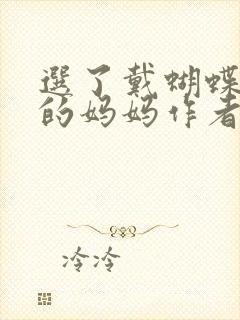 選了戴蝴蝶
的妈妈作者
冷冷